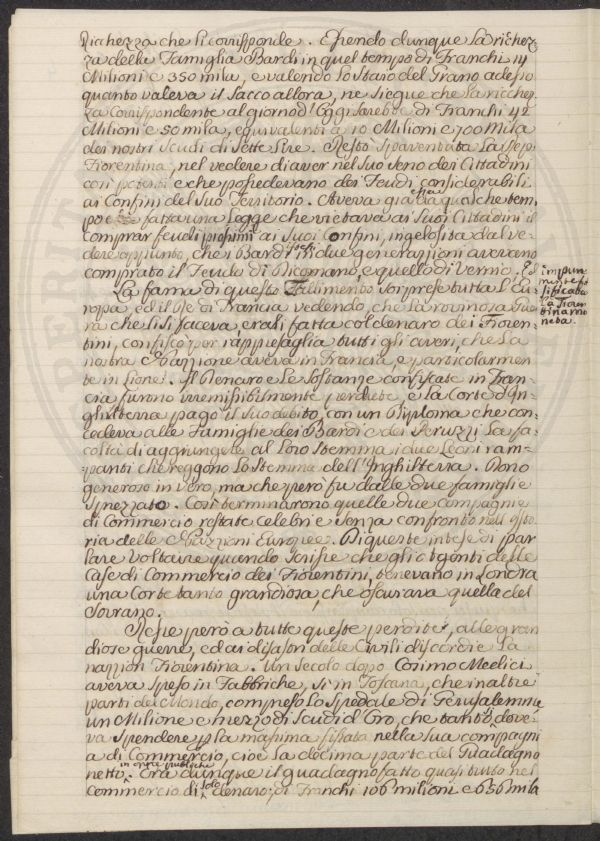 Richezza che li corrisponde. Essendo dunque la richez=
za della Famiglia Bardi in quel tempo di Franchi 14
Milioni e 350 mila, e valendo lo Staro del Grano adesso
quanto valeva il Sacco allora, ne siegue che la ricchez=
za corrispondente al giorno d'Oggi sarebbe di Franchi 42
Milioni e 50 mila, equivalenti a 10 Milioni e 700 Mila
dei nostri Scudi di Sette Lire. Restò spaventata la Rep.
Fiorentina, nel vedere di aver nel suo seno dei Cittadini
così potenti e che possedevano dei Feudi considerabili
ai Confini del suo Territorio. Aveva già da qualche tem=
po essa fatta una Legge che vietava ai suoi Cittadini il
comprar feudi prossimi ai suoi Confini, ingelosita dal ve=
dere appunto, che i Bardi in due generazioni avevano
comprato il Feudo di Dicomano, e quello di Vernio.
impun=
La fama di questo Fallimento sorprese tutta l'Eu=
ropa, ed il Re di Francia vedendo, che la rovinosa Guer=
la Fioren
ra che li si faceva, erasi fatta col denaro dei Fioren=
tina mo
neta.
tini, confiscò per rappresaglia tutti gli averi, che la
nostra Nazzione aveva in Francia, e particolarmen=
te in Lione. Il Denaro e le Sostanze confiscate in Fran=
cia furono irremissibilmente perdute, e la Corte d'In=
ghilterra pagò il suo debito, con un Diploma che con=
cedeva alle Famiglie dei Bardi e dei Peruzzi la fa=
coltà di aggiungere al loro Stemma i due Leoni ram=
panti che reggono lo Stemma dell'Inghilterra. Dono
generoso in vero, ma che però fu dalle due famiglie
sprezzato. Così terminarono quelle due compagnie
di Commercio restate celebri e senza confronto nell'Isto=
ria delle Nazzioni Europee. Di queste intese di par
lare Voltaire quando scrisse che gli Agenti delle
Case di Commercio dei Fiorentini, tenevano in Londra
una Corte tanto grandiosa, che oscurava quella del
Sovrano.
Resse però a tutte queste perdite, alle gran
diose guerre, ed ai disastri delle Civili discordie la
nazzion Fiorentina. Un Secolo dopo Cosimo Medici
aveva speso in Fabbriche, sì in Toscana, che in altre
parti del Mondo, compreso lo Spedale di Gerusalemme
un Milione e mezzo di Scudi d'Oro, che tanto dove=
va spendere p la massima fissata nella sua compagni
a di Commercio, cioè la decima parte del Guadagno
in opre pubbliche
netto. Ora dunque il guadagno fatto quasi tutto nel
solo
commercio di denaro: di Franchi 106 milioni e 656 mila